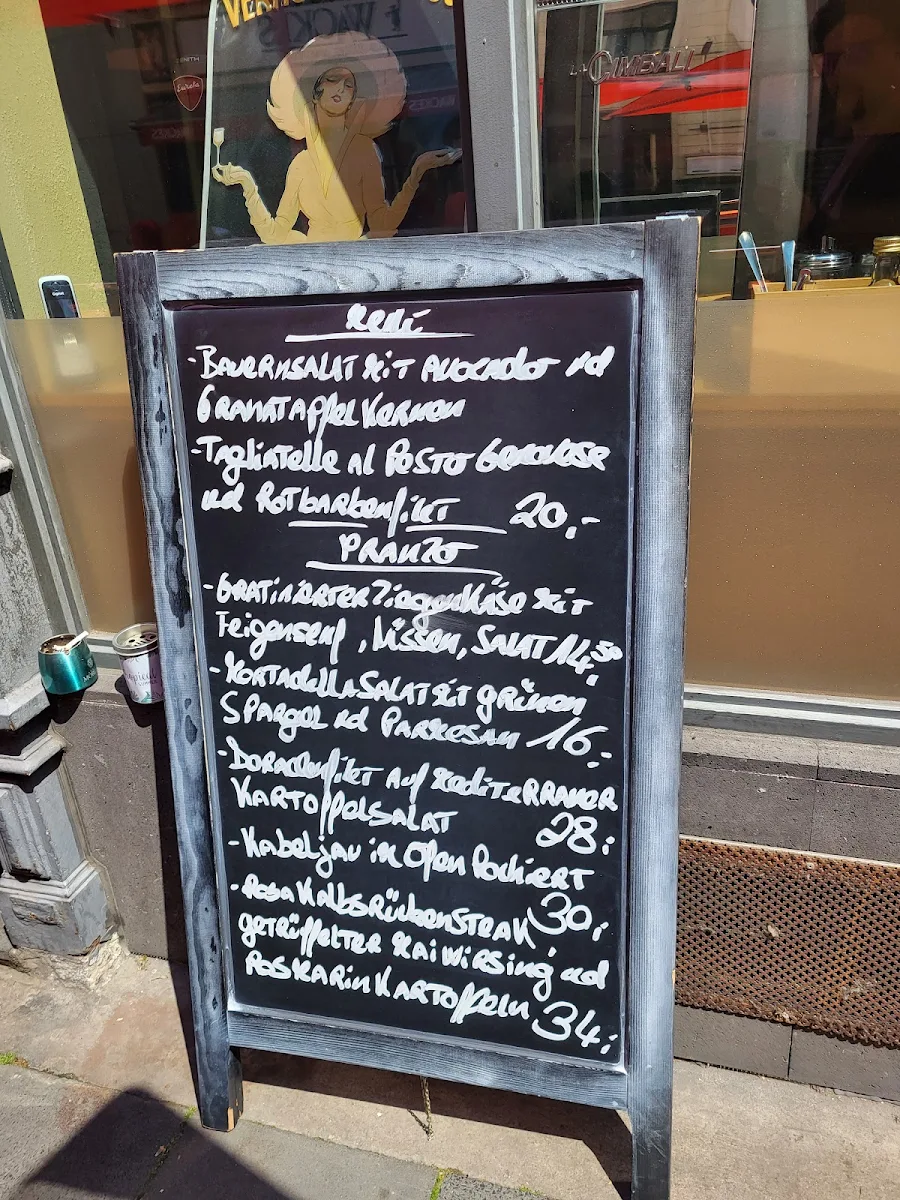 WACKES
LA CIMBALI
Menü
- Bauernsalat mit Avocado und
Granatapfelkernen
- Tagliatelle al Pesto Genovese
und Rotbarbenfilet 20,-
PRANZO
- Gratinierter Ziegenkäse mit
Feigensenf, Nüssen, Salat 14,50
- Mortadellasalat mit grünem
Spargel und Parmesan 16,-
- Doradenfilet auf mediterraner
Kartoffelsalat 28,-
- Kabeljau im Ofen Pochiert
30,-
- Rosa Kalbsrückensteak
getrüffelter Maiwirsing und
Rosmarin Kartoffeln 34,-